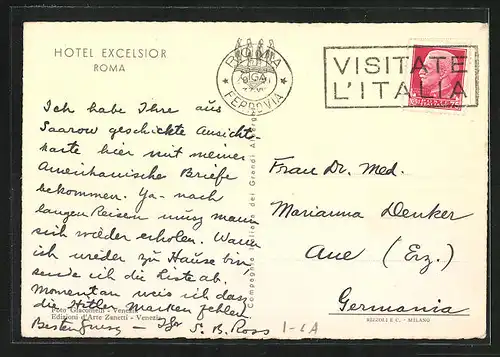 HOTEL EXCELSIOR
ROMA
ROMA
FERROVIA
VISITATE
L'ITALIA
Ich habe Ihre aus
Saarow geschickte Ansicht-
karte hier mit meiner
Amerikanische Briefe
bekommen. Ja - nach
langen Reisen muss mann
sich wieder erholen. Wann
ich wieder zu Hause bin,
sende ich die Liste ab.
Momentan weis ich dass
die Hitler Marken fehlen.
Besten Gruss - Ihr S. B. Ross
1-1A
Foto Giacomelli - Venezia
Edizioni d'Arte Zanetti - Venezia
Compagnia Italiana dei Grandi Alberghi
Frau Dr. Med.
Marianna Denker
Aue (Erz.)
Germania
RIZZOLI E C. - MILANO